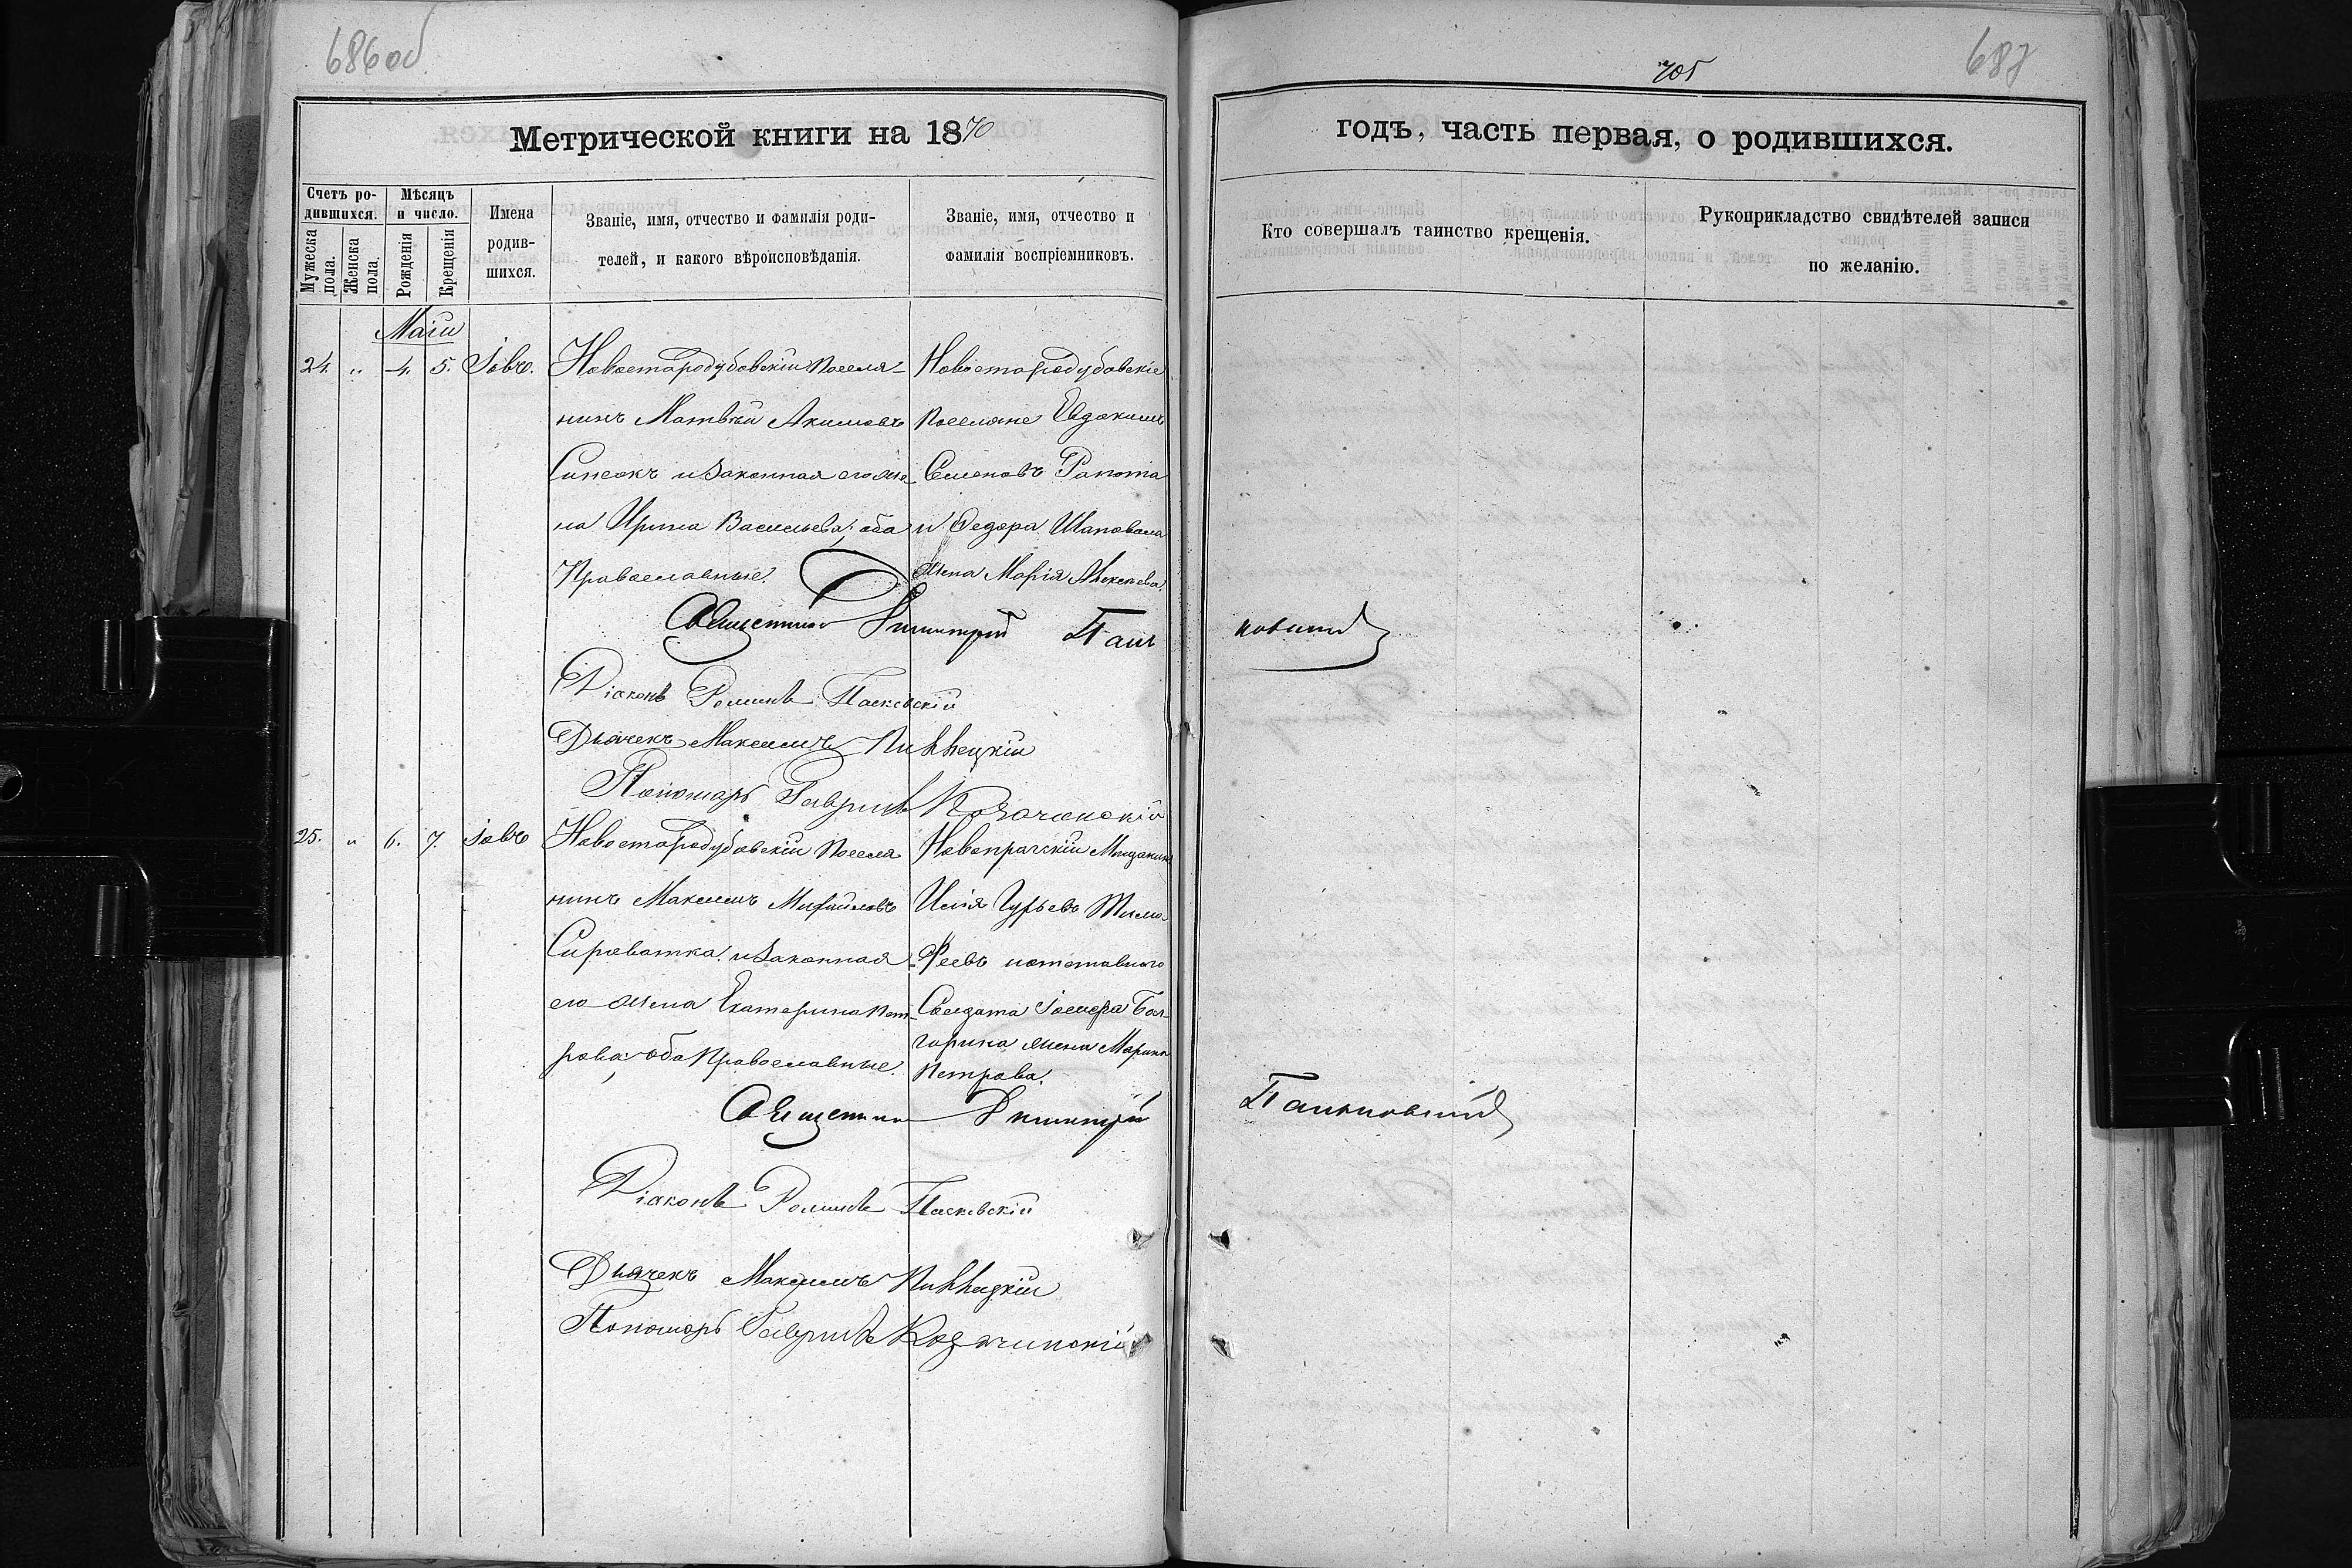 686об
705
687
Метрической книги на 1870
годъ, часть первая, о родившихся.
Счетъ ро-
дившихся.
Мужеска
пола.
Женска
пола.
Мѣсяцъ
и число.
Рожденія
Крещенія
Имена
родив-
шихся.
Званіе, имя, отчество и фамилія роди-
телей, и какого вѣроисповѣданія.
Званіе, имя, отчество и
фамилія воспріемниковъ.
Кто совершалъ таинство крещенія.
Рукоприкладство свидѣтелей записи
по желанію.
Маіи
24. " 4. 5. Іовъ.
Новостародубовскій поселя-
нинъ Матвѣй Акимовъ
и законная его же-
на Ирина Васильева; оба
Православные.
Новостародубовскіе
поселяне Евдокимъ
Семеновъ Рапота
и Федора Шаповала
жена Марія Алексѣева.
Священникъ Димитрій Пань
ковскій
Діаконъ Романъ Пасковскій
Дьячекъ Максимъ
Пономарь Гавріилъ Козачинскій
25. " 6. 7. Іовъ
Новостародубовскій поселя
нинъ Максимъ Михайловъ
Сироватка и законная
его жена Екатерина Пет-
рова; оба Православные.
Новопражскій Мѣщанинъ
Илія Гурьевъ Тимо-
феевъ и отставного
Солдата Іосифа Бол-
гарина жена Марина
Петрова.
Священникъ Димитрій
Паньковскій
Діаконъ Романъ Пасковскій
Дьячекъ Максимъ
Пономарь Гавріилъ Козачинскій